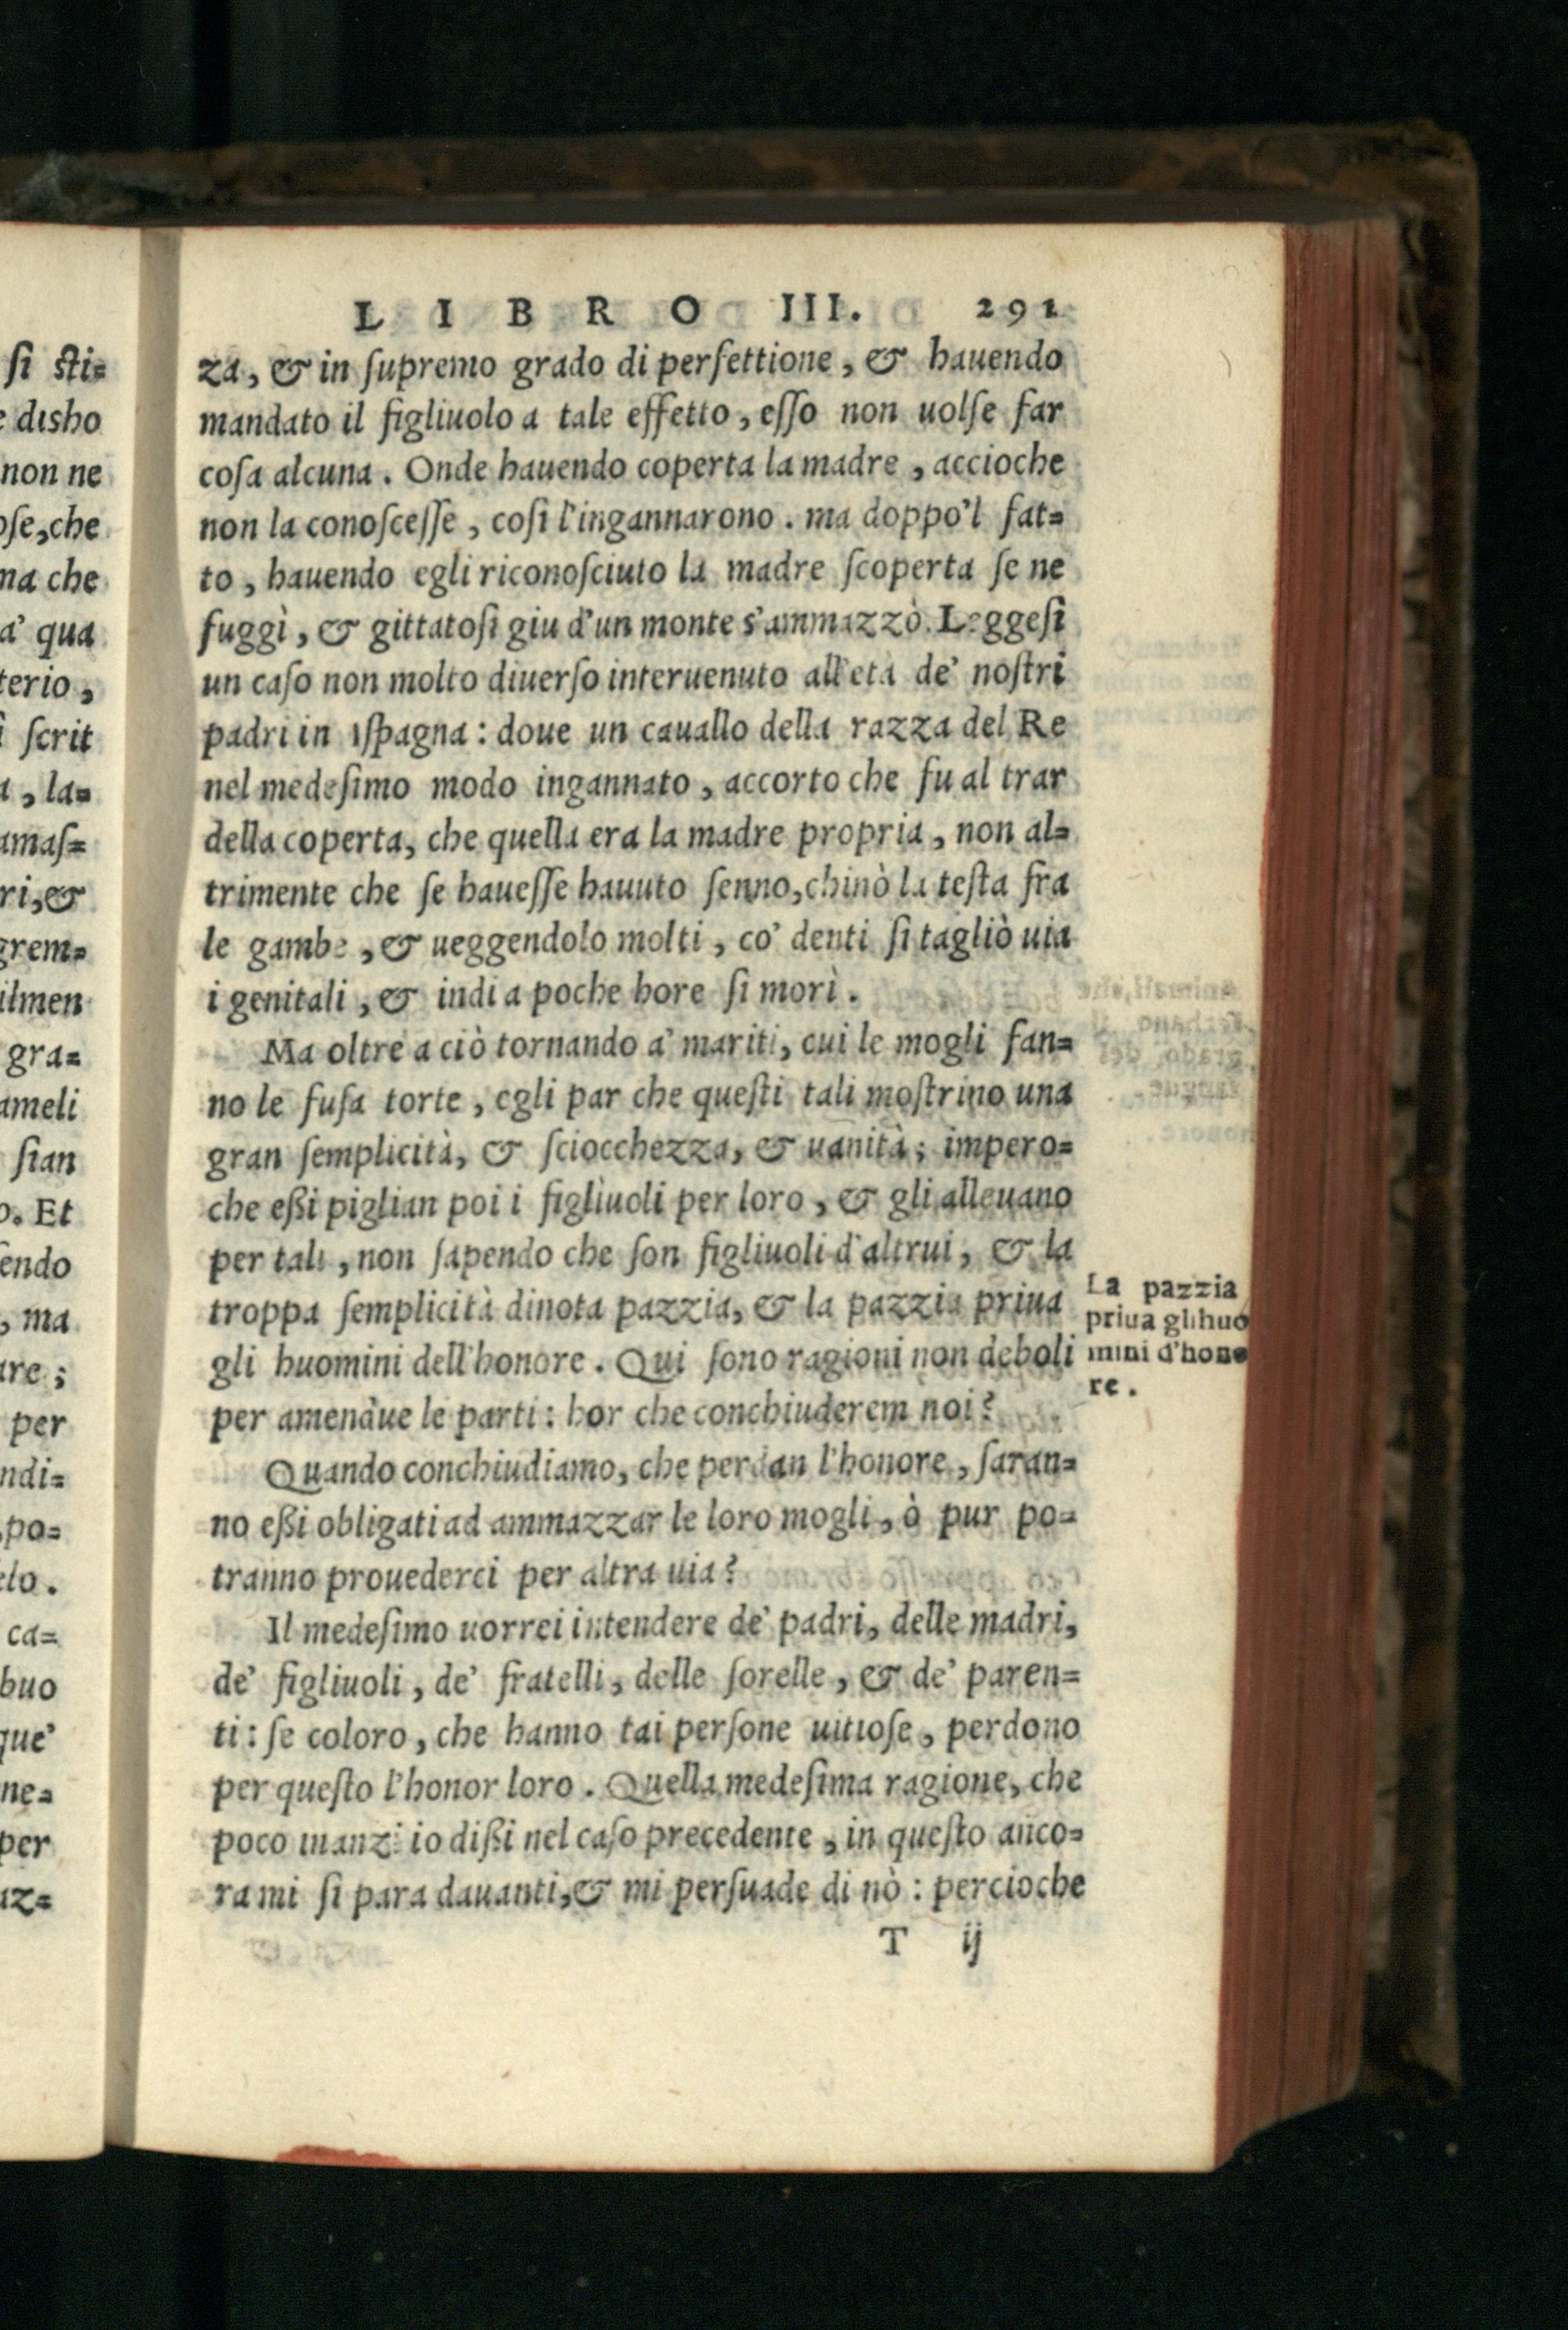 LIBRO III. 291
za, & in ſupremo grado di perfettione, & hauendo
mandato il figliuolo a tale effetto, eſſo non uolſe far
coſa alcuna. Onde hauendo coperta la madre, accioche
non la conoſceſſe, coſi l'ingannarono. ma doppo'l fat=
to, hauendo egli riconoſciuto la madre ſcoperta ſe ne
fuggì, & gittatoſi giu d'un monte s'ammazzò. Leggeſi
un caſo non molto diuerſo interuenuto all'eta de' noſtri
padri in Iſpagna: doue un cauallo della razza del Re
nel medeſimo modo ingannato, accorto che fu al trar
della coperta, che quella era la madre propria, non al=
trimente che ſe haueſſe hauuto ſenno, chinò la teſta fra
le gambe, & ueggendolo molti, co' denti ſi tagliò uia
i genitali, & indi a poche hore ſi morì.
Ma oltre a ciò tornando a' mariti, cui le mogli fan=
no le fuſa torte, egli par che queſti tali moſtrino una
gran ſemplicità, & ſciocchezza, & uanità; impero=
che eßi piglian poi i figliuoli per loro, & gli alleuano
per tali, non ſapendo che ſon figliuoli d'altrui, & la
troppa ſemplicità dinota pazzia, & la pazzia priua
gli huomini dell'honore. Qui ſono ragioni non deboli
per amendue le parti: hor che conchiuderem noi?
Quando conchiudiamo, che perdan l'honore, ſaran=
no eßi obligati ad ammazzar le loro mogli, ò pur po=
tranno prouederci per altra uia?
Il medeſimo uorrei intendere de' padri, delle madri,
de' figliuoli, de' fratelli, delle ſorelle, & de' paren=
ti: ſe coloro, che hanno tai perſone uitioſe, perdono
per queſto l'honor loro. Quella medeſima ragione, che
poco inanzi io dißi nel caſo precedente, in queſto anco=
ra mi ſi para dauanti, & mi perſuade di nò: percioche
T ij
La pazzia
priua gli huo
mini d'hono
re.
ſi ſti=
disho
non ne
oſe, che
ma che
a' qua
terio,
ſcrit
a, la=
amaſ=
ri, &
grem=
ilmen
gra=
ameli
ſian
o. Et
ſendo
, ma
are;
per
ndi=
po=
elo.
ca=
huo
que'
ne=
per
az=